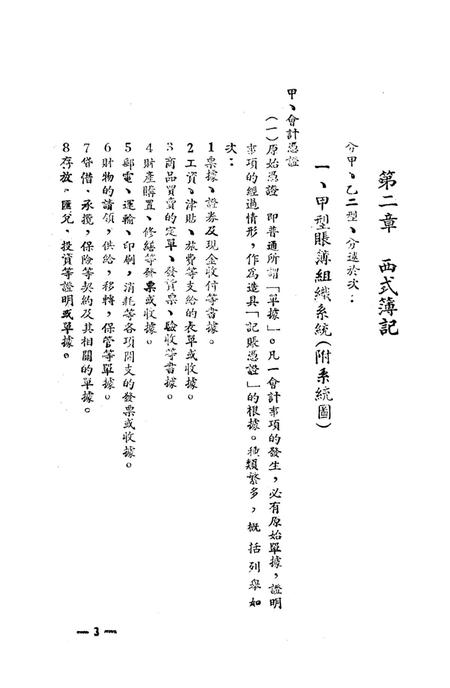 第二章　西式簿記
分甲、乙二型、分述於次：
一、甲型賬簿組織系統（附系統圖）
甲、會計憑證
（一）原始憑證　即普通所謂「單據」。凡一會計事項的發生，必有原始單據，證明
事項的經過情形，作為造具「記賬憑證」的根據。種類繁多，概括列舉如
次：
1票據、證券及現金收付等書據。
2工資、津貼、旅費等支給的表單或收據。
3商品買賣的定單、發貨票、驗收等書據。
4財產購置、修繕等發票或收據。
5郵電、運輸、印刷，消耗等各項開支的發票或收據。
6財物的請領，供給，移轉，保管等單據。
7借借、承攬，保險等契約及其相關的單據。
8存放。匯兌，投資等證明或單據。
—3—